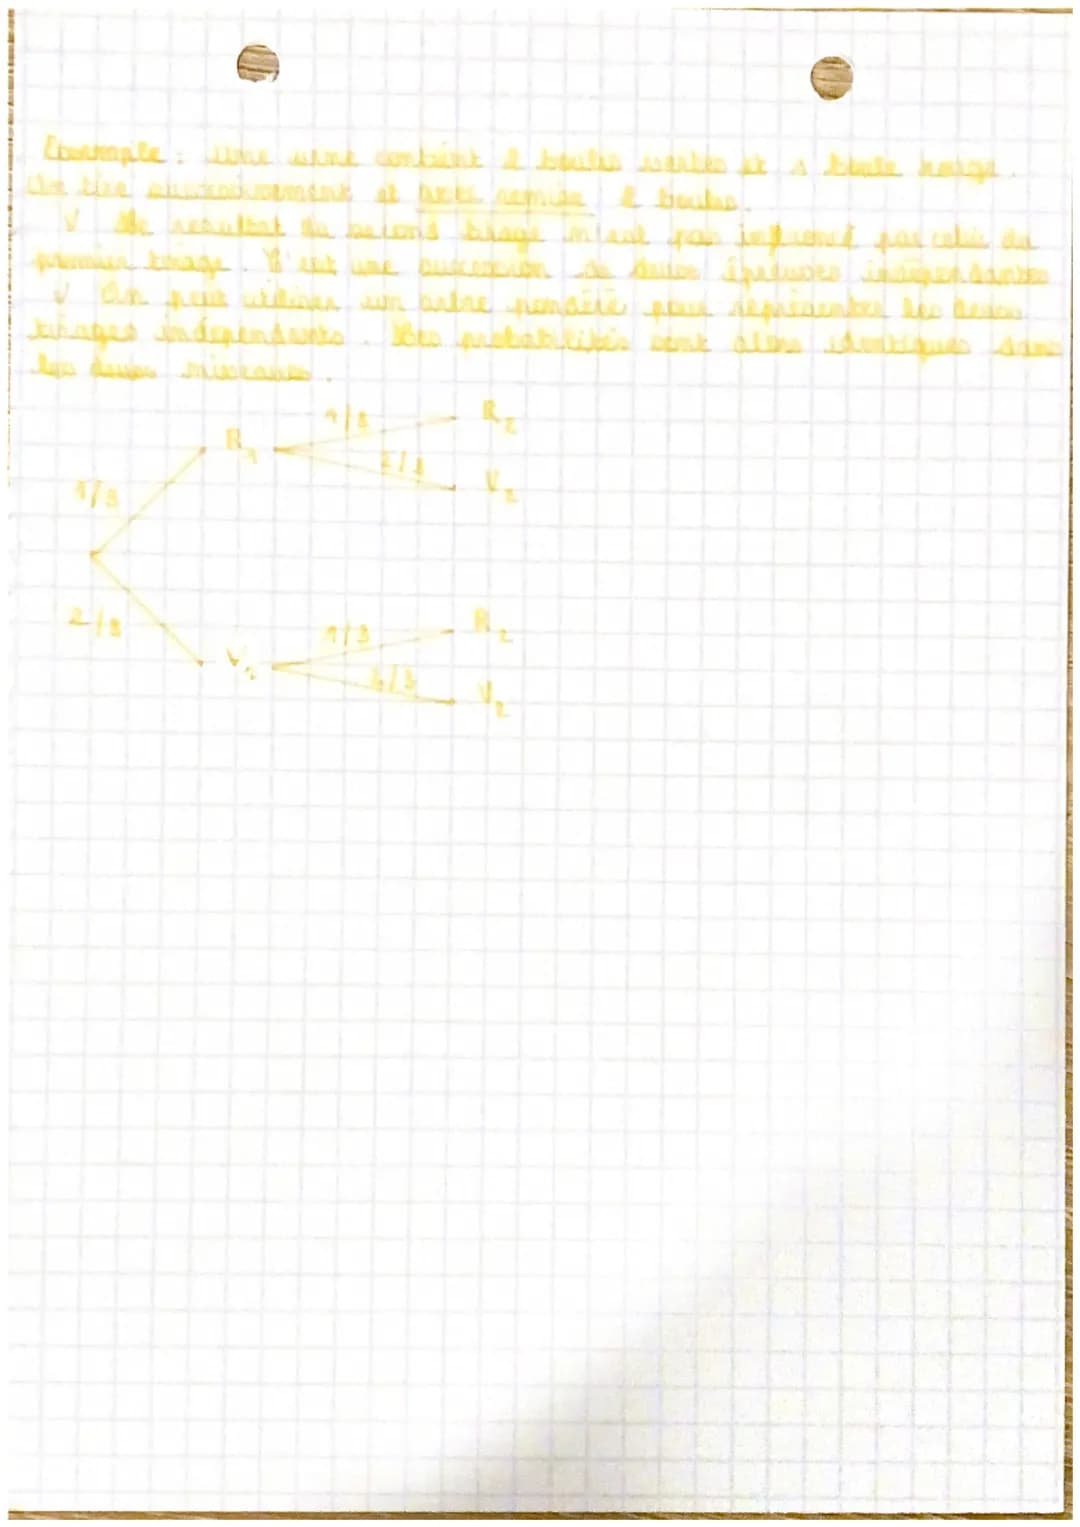 Exemple : Une urne contient 2 boules vertes et 1 boule rouge.
On tire successivement et avec remise 2 boules.
√ Le resultat du second tirage n'est pas influencé par celui du
premier tirage. C'est une succession de deux épreuves indépendantes
√ On peut utiliser un arbre pondéré pour représenter les deux
tirages indépendants. Les probabilités sont alors identiques dans
les deux niveaux.
1/3 R2
R1
2/3 V2
1/3
2/3
1/3 R2
V1
2/3 V2